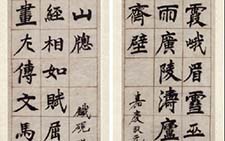 霞峨眉雪巫
雨廣陵濤廬
齋壁
嘉慶
畫左傳文馬
經相如賦屈
山牕
鐵硯